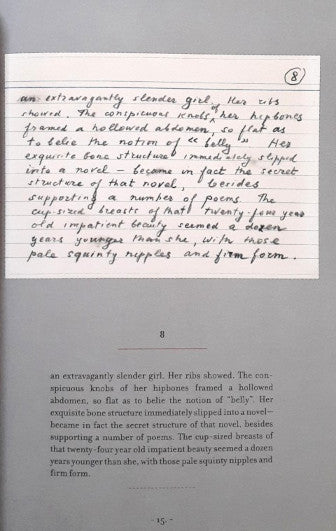 8
an extravagantly slender girl. Her ribs
showed. The conspicuous knobs of her hipbones
framed a hollowed abdomen, so flat as
to belie the notion of "belly". Her
exquisite bone structure immediately slipped
into a novel – became in fact the secret
structure of that novel, besides
supporting a number of poems. The
cup-sized breasts of that twenty-four year
old impatient beauty seemed a dozen
years younger than she, with those
pale squinty nipples and firm form.
8
an extravagantly slender girl. Her ribs showed. The con-
spicuous knobs of her hipbones framed a hollowed
abdomen, so flat as to belie the notion of "belly". Her
exquisite bone structure immediately slipped into a novel—
became in fact the secret structure of that novel, besides
supporting a number of poems. The cup-sized breasts of
that twenty-four year old impatient beauty seemed a dozen
years younger than she, with those pale squinty nipples and
firm form.
- 15 -